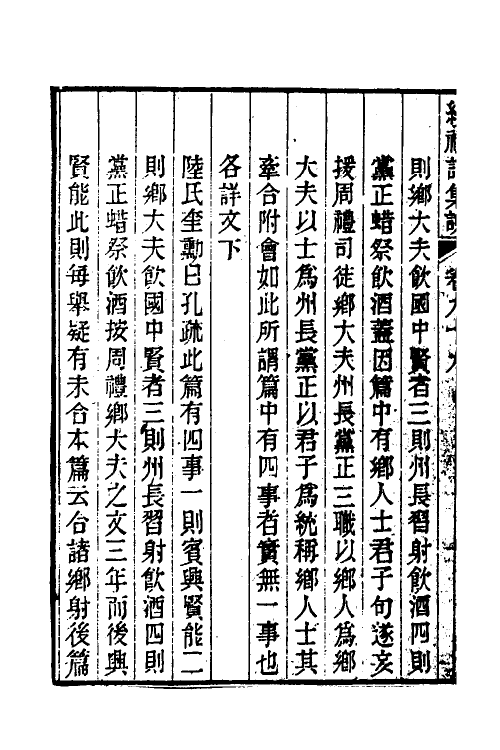 續禮記集說 卷九十九
則鄉大夫飲國中賢者三則州長習射飲酒四則
黨正蜡祭飲酒蓋因篇中有鄉人士君子句遂妄
援周禮司徒鄉大夫州長黨正三職以鄉人為鄉
大夫以士為州長黨正以君子為統稱鄉人士其
牽合附會如此所謂篇中有四事者實無一事也
各詳文下
陸氏奎勳曰孔疏此篇有四事一則賓興賢能二
則鄉大夫飲國中賢者三則州長習射飲酒四則
黨正蜡祭飲酒按周禮鄉大夫之文三年而後興
賢能此則每舉疑有未合本篇云合諸鄉射後篇